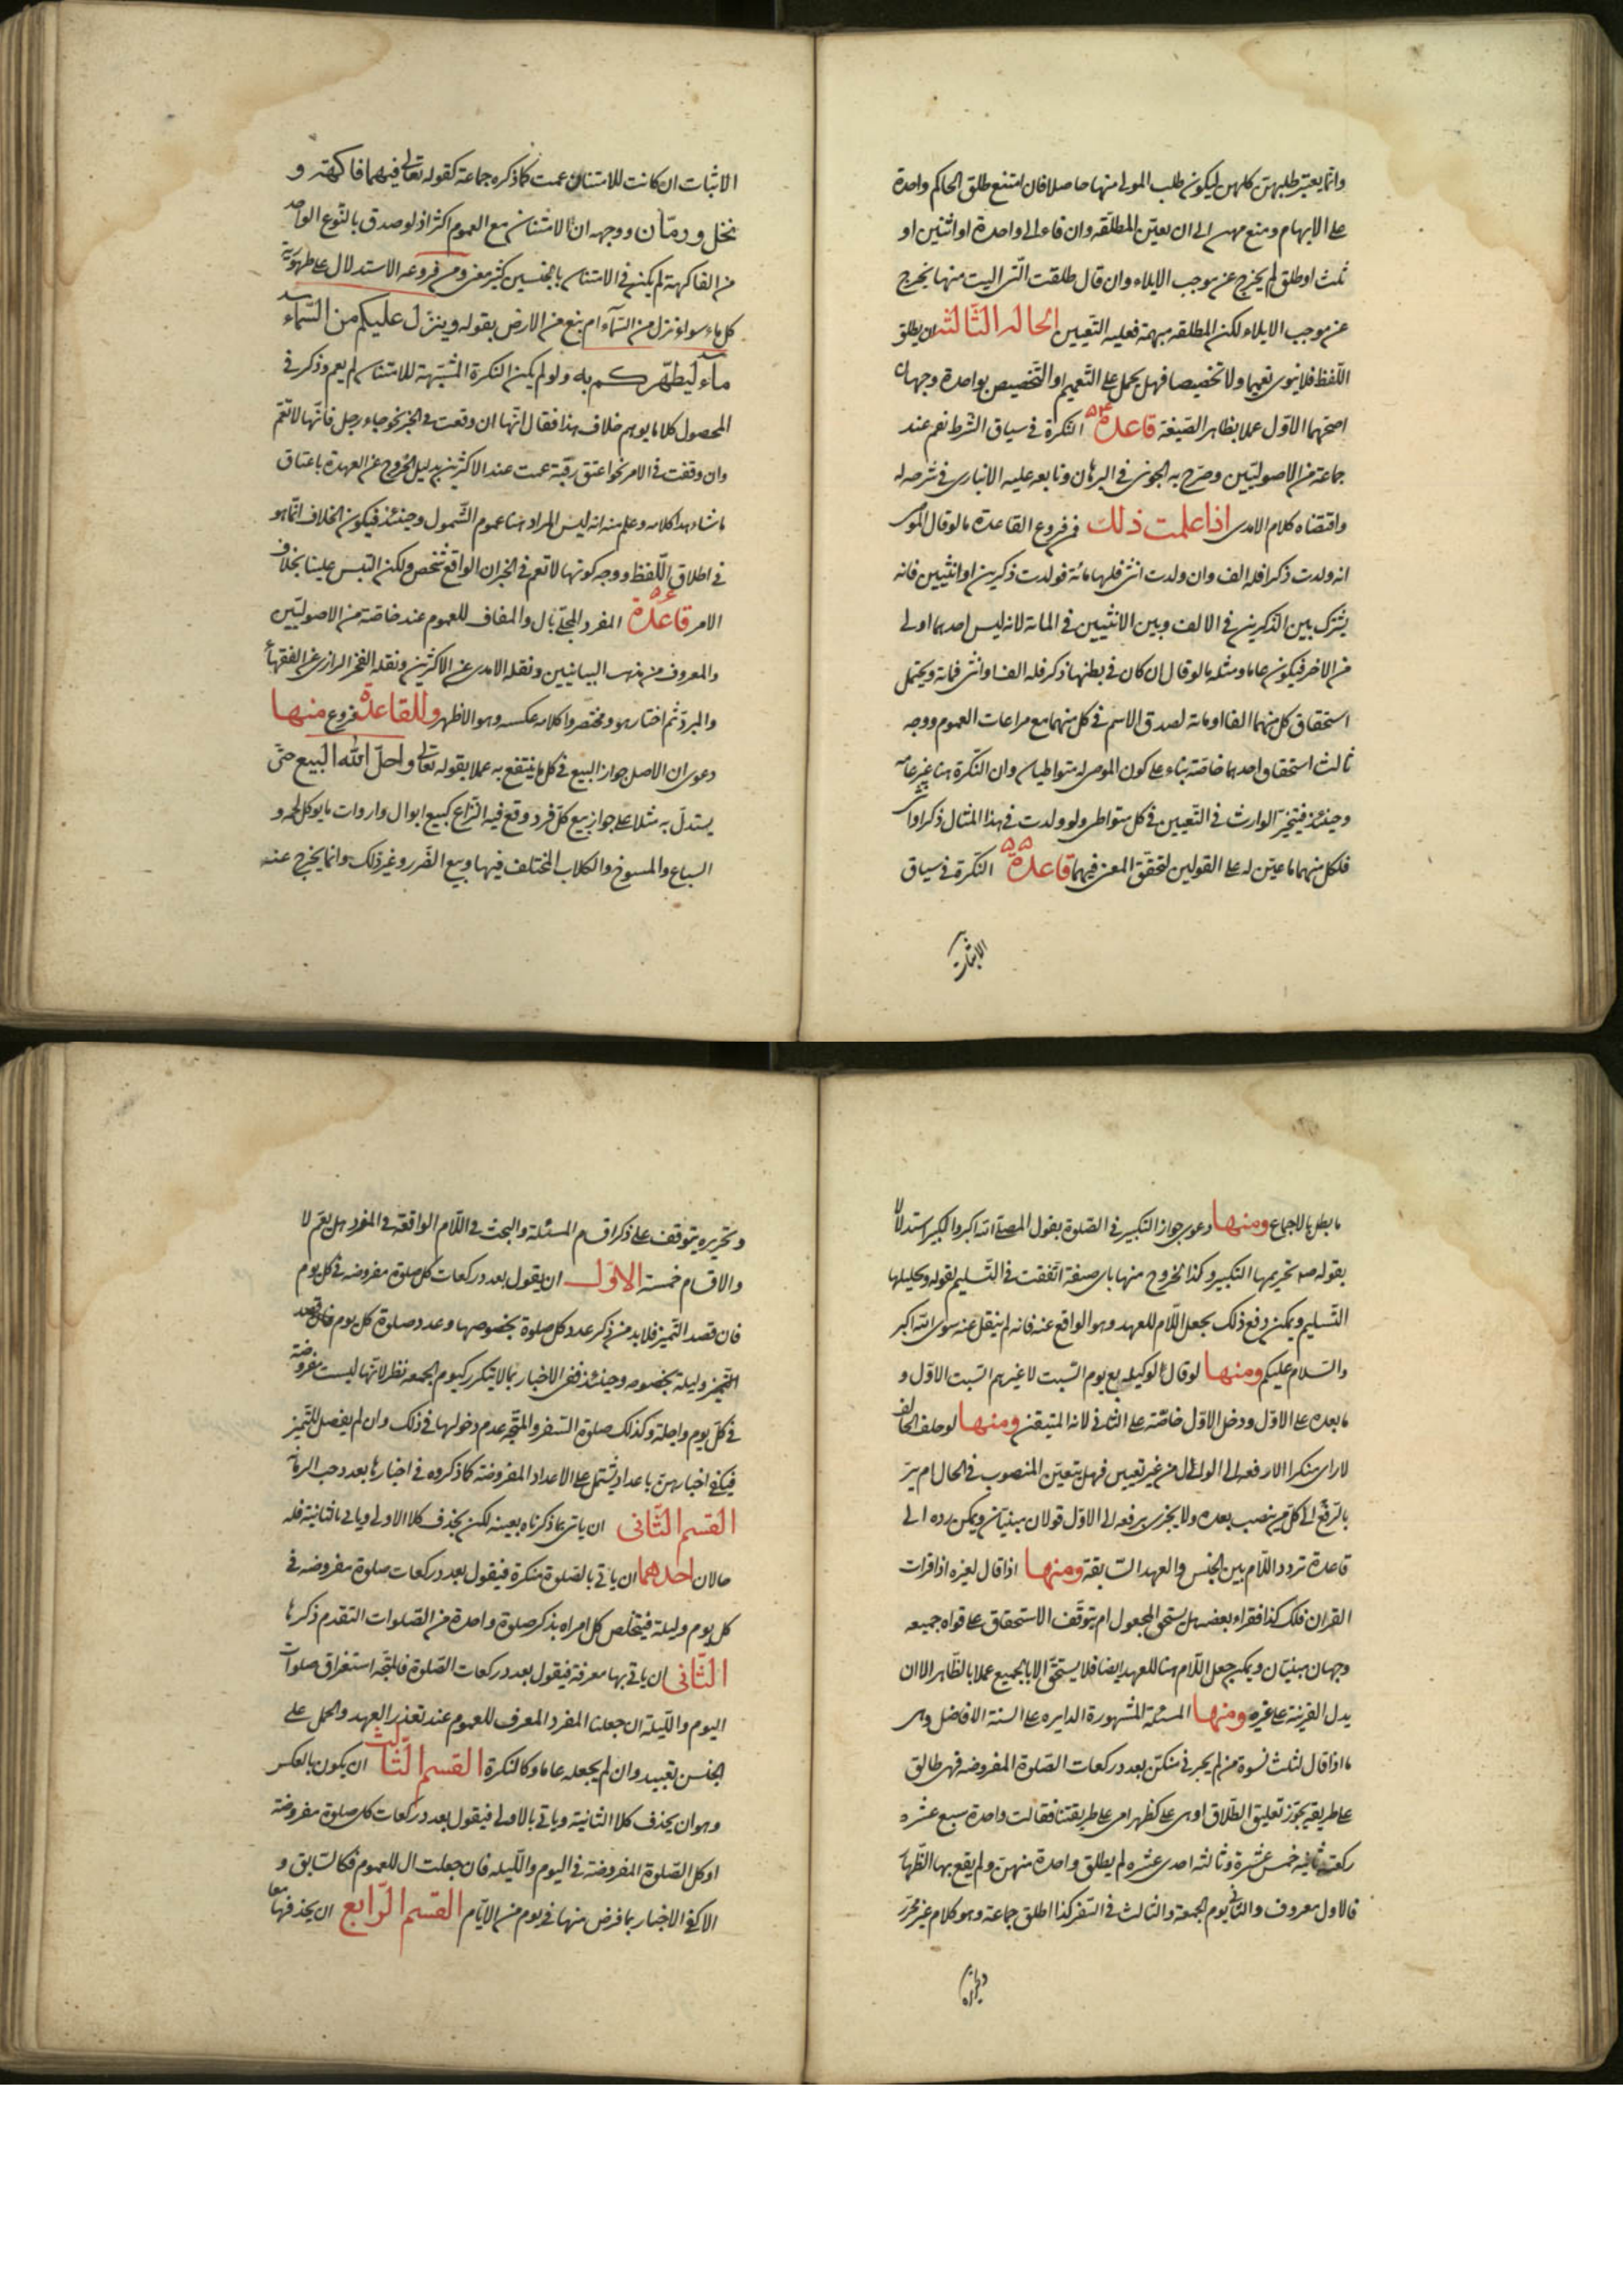 وانما يعتبر طلبهن كلهن ليكون طلب المولى منها حاصلا فان امتنع طلق الحاكم واحدة
على الابهام ومنع منهن الى ان يعين المطلقه وان فاء الى واحدة او اثنتين او
ثلث او طلق لم يخرج عن موجب الايلاء وان قال طلقت التى اليت منها يخرج
عن موجب الايلاء لكن المطلقه مبهمة فعليه التعيين الحالة الثالثة ان يطلق
اللفظ فلا ينوى تعميما ولا تخصيصا فهل يحمل على التعميم او التخصيص بواحدة وجهان
اصحهما الاول عملا بظاهر الصيغة قاعدة ٥٤ النكرة فى سياق الشرط تعم عند
جماعة من الاصوليين وصرح به الجوينى فى البرهان وتابعه عليه الانبارى فى شرحه له
واقتضاه كلام الامدى اذا علمت ذلك فمن فروع القاعدة ما لو قال الموصى
انه ولدت ذكرا فله الف وان ولدت انثى فلها مائة فولدت ذكرين او انثيين فانه
يشترك بين الذكرين فى الالف وبين الانثيين فى المائة لانه ليس احدهما اولى
من الاخر فيكون عاما ومثله ما لو قال ان كان فى بطنها ذكر فله الف او انثى فمائة ويحتمل
استحقاق كل منهما الفا او مائة لصدق الاسم فى كل منهما مع مراعات العموم ووجه
ثالث استحقاق احدهما خاصة بناء على كون الموصى له متواطيا وان النكرة هنا غير عامة
وحينئذ فيتخير الوارث فى التعيين فى كل متواطى ولو ولدت فى هذا المثال ذكرا وانثى
فلكل منهما ما عين له على القولين لتحقق المعنى فيهما قاعدة ٥٥ النكرة فى سياق
الاثبات
الاثبات ان كانت للامتنان عمت كما ذكره جماعة كقوله تعالى فيهما فاكهة و
نخل ورمان ووجهه ان الامتنان مع العموم اكثر اذ لو صدق بالنوع الواحد
من الفاكهة لم يكن فى الامتنان بالجنسين كثير معنى ومن فروعه الاستدلال على طهورية
كل ماء سواء نزل من السماء ام نبع من الارض بقوله وينزل عليكم من السماء
ماء ليطهركم به ولو لم يكن النكرة المثبتة للامتنان لم يعم وذكر فى
المحصول كلاما يوهم خلاف هذا فقال انها ان وقعت فى الخبر نحو جاء رجل فانها لا تعم
وان وقعت فى الامر نحو اعتق رقبة عمت عند الاكثرين بدليل الخروج عن العهدة باعتاق
ما شاء هذا كلامه وعلم منه انه ليس المراد هنا عموم الشمول وحينئذ فيكون الخلاف انما هو
فى اطلاق اللفظ ووجه كونها لا تعم فى الخبر ان الواقع شخص ولكن التبس علينا بخلاف
الامر قاعدة ٥٦ المفرد المحلى بال والمضاف للعموم عند خاصة من الاصوليين
والمعروف من مذهب البيانيين ونقله الامدى عن الاكثرين ونقله الفخر الرازى عن الفقهاء
والمبرد ثم اختار هو ومختصروا كلامه عكسه وهو الاظهر وللقاعدة فروع منها
دعوى ان الاصل جواز البيع فى كل ما ينتفع به عملا بقوله تعالى واحل الله البيع حتى
يستدل به مثلا على جواز بيع كل فرد وقع فيه النزاع كبيع ابوال واروات ما يوكل لحمه و
السباع والمسوخ والكلاب المختلف فيها وبيع الضرر وغير ذلك وانما يخرج عنه
ما بطل بالاجماع ومنها دعوى جواز التكبير فى الصلوة بقول المصلى الله اكبر والكبير استدلالا
بقوله صه تحريمها التكبير وكذا الخروج منها باى صيغة اتفقت فى التسليم لقوله وتحليلها
التسليم ويمكن دفع ذلك بجعل اللام للعهد وهو الواقع عنه فانه لم ينقل عنه سوى الله اكبر
والسلام عليكم ومنها لو قال لوكيله بع يوم السبت لا غيرهم السبت الاول و
ما بعده على الاول ودخل الاول خاصة على الثانى لانه المتيقن ومنها لو حلف الحالف
لا راى منكرا الا رفعه الى الوالى من غير تعيين فهل يتعين المنصوب فى الحال ام يبر
بالرفع الى كل من ينصب بعده ولا يجزى برفعه الى الاول قولان مبنيان ويمكن رده الى
قاعدة تردد اللام بين الجنس والعهد السابقة ومنها اذا قال لغيره اذا قرات
القران فلك كذا فقراء بعضه هل يستحق المجعول ام يتوقف الاستحقاق على قراءة جميعه
وجهان مبنيان ويمكن جعل اللام هنا للعهد ايضا فلا يستحق الا بالجميع عملا بالظاهر الا ان
يدل القرينة على غيره ومنها المسئلة المشهورة الدايره على السنة الافاضل وهى
ما اذا قال لثلث نسوة من لم يخبرنى منكن بعدد ركعات الصلوة المفروضه فهى طالق
على طريقه يجوز تعليق الطلاق او هى على كظهر امى على طريقتنا فقالت واحدة سبع عشره
ركعة وثانيه خمس عشرة وثالثه احدى عشره لم يطلق واحدة منهن ولم يقع بها الظهار
فالاول معروف والثانى يوم الجمعة والثالث فى السفر كذا اطلق جماعة وهو كلام غير محرر
وتحريره
وتحريره يتوقف على ذكر اقسام المسئلة والبحث فى اللام الواقعة فى المفرد هل يعم لا
والاقسام خمسة الاول ان يقول بعدد ركعات كل صلوة مفروضه فى كل يوم
فان قصد التميز فلا بد من ذكر عدد كل صلوة بخصوصها وعدد صلوة كل يوم فان قصد
التميز وليلة بخصوصه وحينئذ ففى الاخبار بما لا يتكرر كيوم الجمعه نظر لانها ليست مفروضة
فى كل يوم وليلة وكذلك صلوة السفر والمتجه عدم دخولها فى ذلك وان لم يفصل للتميز
فيكفى اخبارهن باعداد يشتمل على الاعداد المفروضة كما ذكروه فى اخبارها بعدد حب الرمانة
القسم الثانى ان ياتى بما ذكرناه بعينه لكن يحذف كلا الاولى وياتى بالثانية فله
حالان احدهما ان ياتى بالصلوة منكرة فيقول بعدد ركعات صلوة مفروضه فى
كل يوم وليلة فيتخلص كل امراه بذكر صلوة واحدة من الصلوات المتقدم ذكرها
الثانى ان ياتى بها معرفة فيقول بعدد ركعات الصلوة فالمتجه استغراق صلوات
اليوم والليلة ان جعلنا المفرد المعرف للعموم عند تعذير العهد والحمل على
الجنس بعيد وان لم يجعله عاما وكالنكرة القسم الثالث ان يكون بالعكس
وهو ان يحذف كلا الثانية وياتى بالاولى فيقول بعدد ركعات كل صلوة مفروضة
او كل الصلوة المفروضة فى اليوم والليله فان جعلت ال للعموم فكالسابق و
الا كفى الاخبار بما فرض منها فى يوم من الايام القسم الرابع ان يحذفهما معا